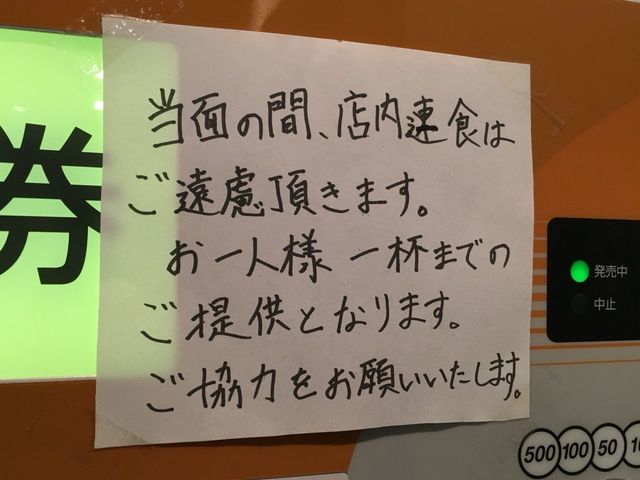 当面の間、店内連食は
ご遠慮頂きます。
お一人様 一杯までの
ご提供となります。
ご協力をお願いいたします。
券
発売中
中止
500 100 50